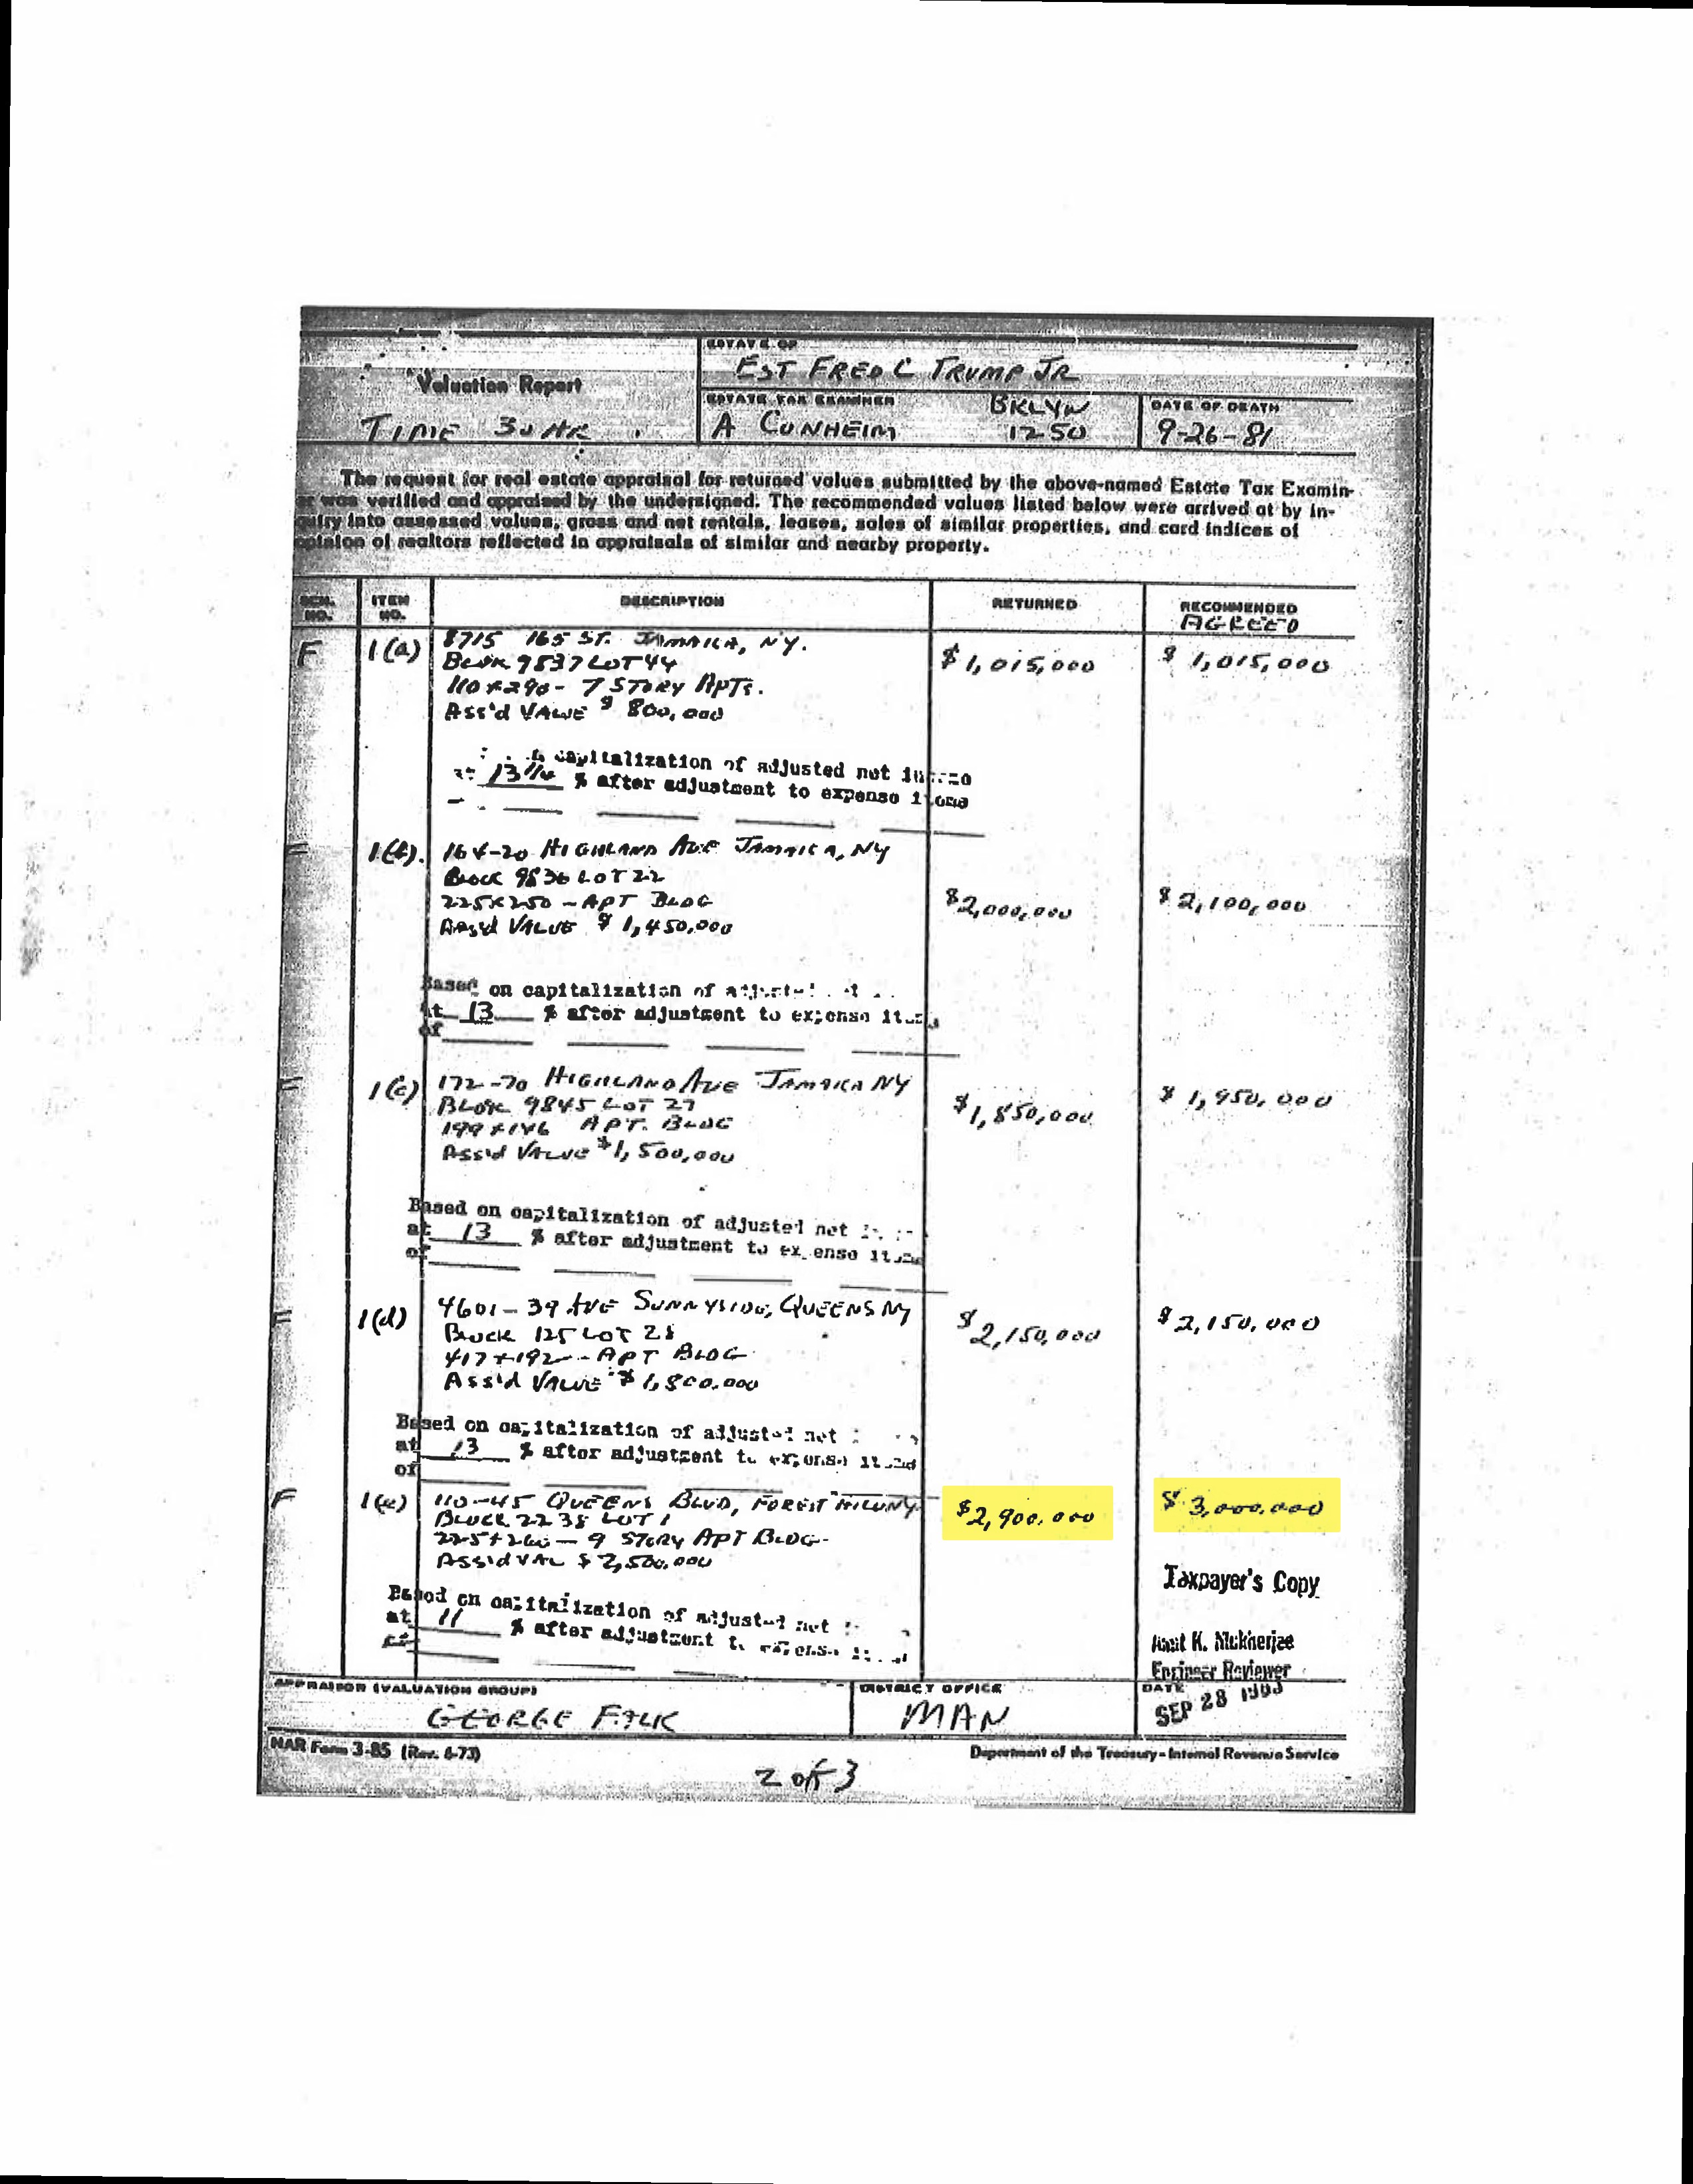 ESTATE OF
EST FRED C TRUMP JR
Valuation Report
TIME 30 HR
ESTATE TAX EXAMINER
A CONHEIM
BKLYN
1250
DATE OF DEATH
9-26-81
The request for real estate appraisal for returned values submitted by the above-named Estate Tax Examin-
er was verified and appraised by the undersigned. The recommended values listed below were arrived at by in-
quiry into assessed values, gross and net rentals, leases, sales of similar properties, and card indices of
opinion of realtors reflected in appraisals of similar and nearby property.
SCH. NO.
ITEM NO.
DESCRIPTION
RETURNED
RECOMMENDED
AGREED
F 1(a) 8715 165 ST. JAMAICA, NY.
BLOK 9837 LOT 44
$1,015,000 $1,015,000
110 x 290 - 7 STORY APTS.
Ass'd VALUE $ 800,000
capitalization of adjusted net
% after adjustment to expense items
F 1(b). 164-20 HIGHLAND AVE JAMAICA, NY
BLOCK 9836 LOT 22
225 x 250 - APT BLDG $2,000,000 $2,100,000
Ass'd VALUE $ 1,450,000
Based on capitalization of
at 13 % after adjustment to expense items
of
F 1(c) 172-70 HIGHLAND AVE JAMAICA NY
BLOK 9845 LOT 27 $1,850,000 $1,950,000
199 x 146 APT. BLDG
Ass'd VALUE $1,500,000
Based on capitalization of adjusted net
at 13 % after adjustment to expense items
of
F 1(d) 4601-39 AVE SUNNYSIDE, QUEENS NY
BLOCK 125 LOT 28 $2,150,000 $2,150,000
417 x 192 - APT BLDG
Ass'd VALUE $ 1,800,000
Based on capitalization of adjusted net
at 13 % after adjustment to expense items
of
F 1(e) 110-45 QUEENS BLVD, FOREST HILLS NY $2,900,000 $3,000,000
BLOCK 2238 LOT 1
225 x 260 - 9 STORY APT BLDG
Ass'd VAL $ 2,500,000
Taxpayer's Copy
Based on capitalization of adjusted net
at 11 % after adjustment to expense
of
Amit K. Mukherjee
Engineer Reviewer
APPRAISOR (VALUATION GROUP)
GEORGE FALK
DISTRICT OFFICE
MAN
DATE
SEP 28 1983
NAR Form 3-85 (Rev. 6-73)
Department of the Treasury-Internal Revenue Service
2 of 3